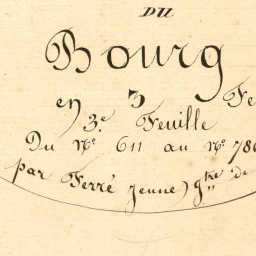 DU
Bourg
en 3 Fe
3.e Feuille
Du N.o 611 au N.o 786
par Ferré jeune, g.tre de